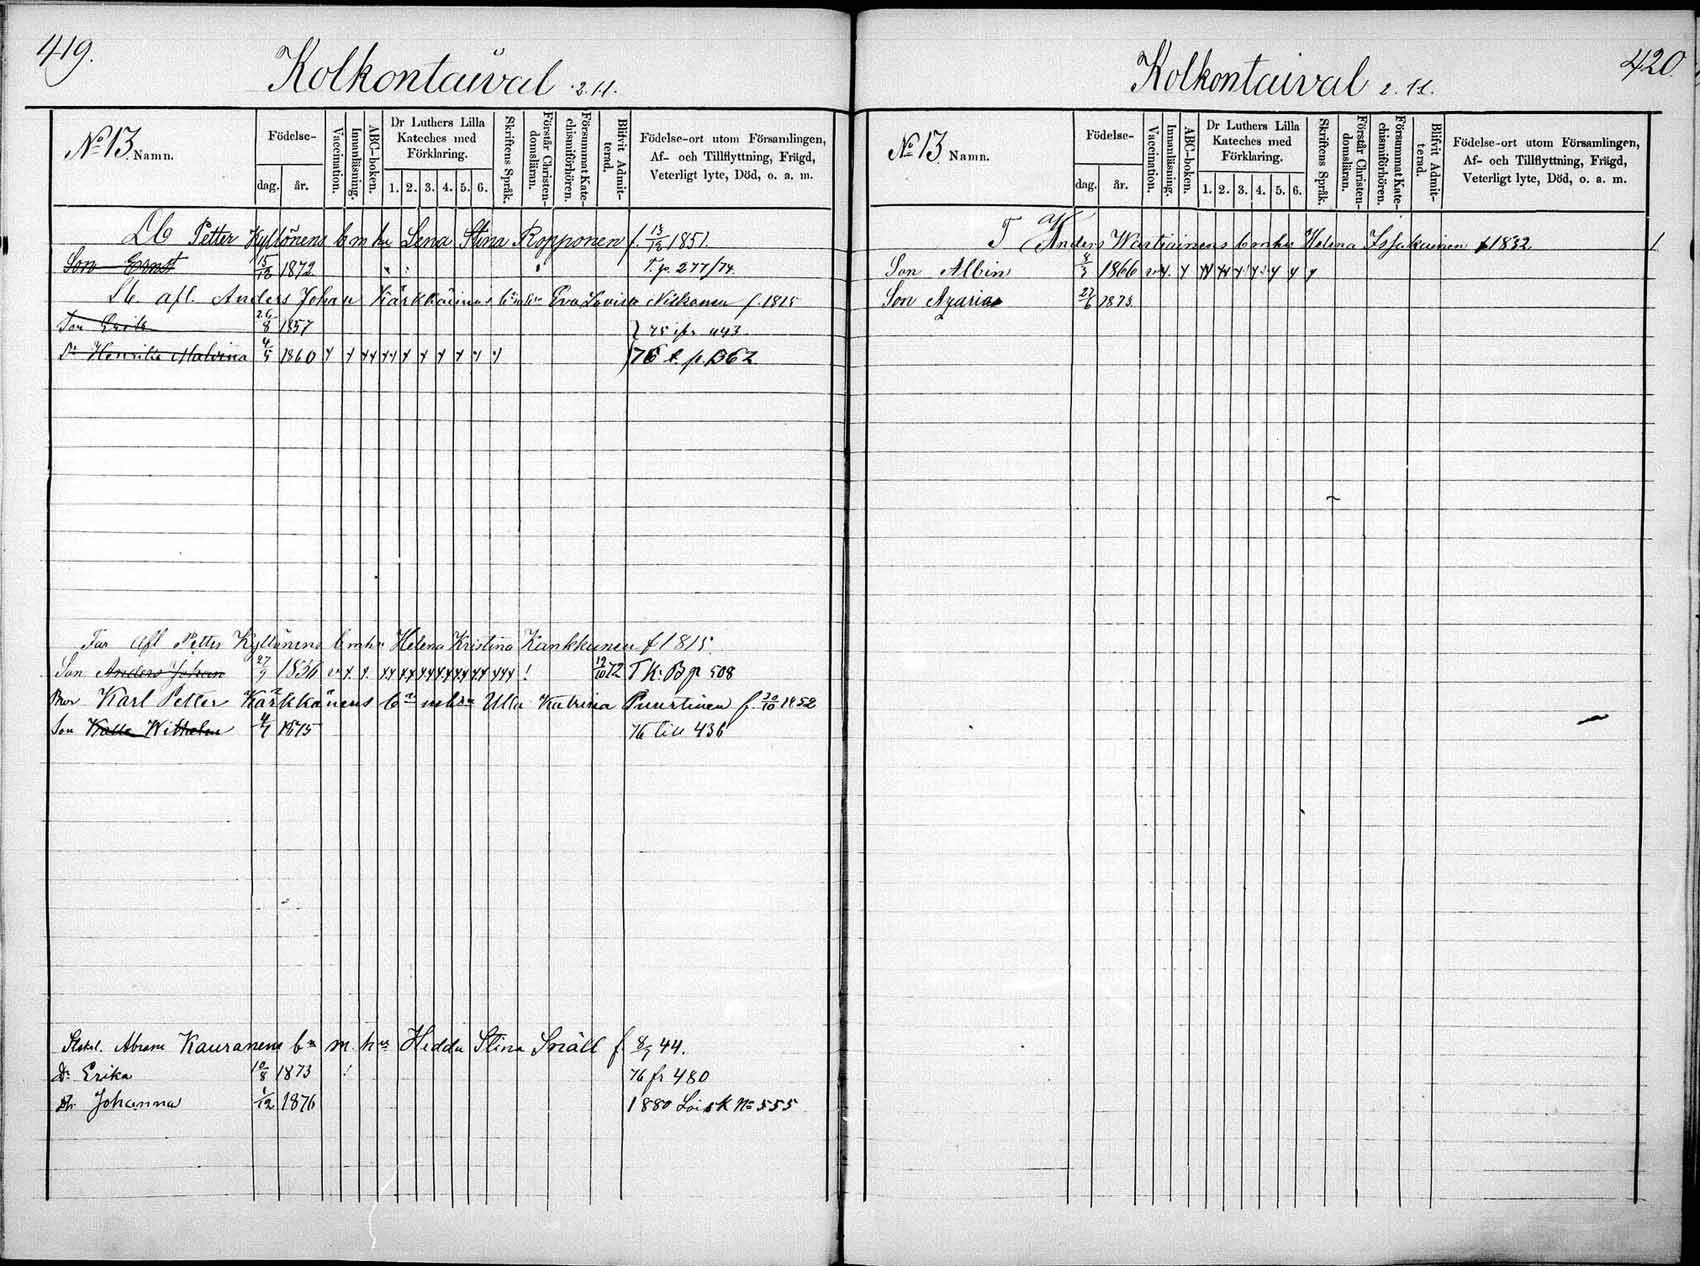 419.
Kolkontaival 2.H.
No 13 Namn.
Födelse-
dag. år.
Vaccination.
Innanläsning.
ABC-boken.
Dr Luthers Lilla Kateches med Förklaring.
1. 2. 3. 4. 5. 6.
Skriftens Språk.
Förstår Christen-domsläran.
Försummat Kate-chismiförhören.
Blifvit Admit-terad.
Födelse-ort utom Församlingen, Af- och Tillflyttning, Frägd, Veterligt lyte, Död, o. a. m.
Petter Kyllönens b m hu Lena Stina Ropponen f. 13/12 1851
Son Ernst 15/12 1872 T. p. 277/74.
afl. Anders Johan Kärkkäinens Eva Lovisa Niskanen f. 1815
Son Erik 26/8 1857 75 fr 443
Dr Henrika Malvina 4/5 1860 76 t. p. 362
Far afl Petter Kyllönens b mhu Helena Kristina Kankkunen f 1815
Son Anders Johan 27/9 1836 ! 19/10 72 T K. B p 508
Bror Karl Petter Kärkkänens bn mhu Ulla Katrina Puurtinen f. 30/10 1852
Son Kalle Wilhelm 4/7 1875 76 till 436
Abram Kauranens bn m. hu Hedda Stina Snäll f 8/9 44.
Dr Erika 10/8 1873 ! 76 fr 480
Dr Johanna 1/12 1876 1880 No 555
420.
Kolkontaival 2.H.
No 13 Namn.
Födelse-
dag. år.
Vaccination.
Innanläsning.
ABC-boken.
Dr Luthers Lilla Kateches med Förklaring.
1. 2. 3. 4. 5. 6.
Skriftens Språk.
Förstår Christen-domsläran.
Försummat Kate-chismiförhören.
Blifvit Admit-terad.
Födelse-ort utom Församlingen, Af- och Tillflyttning, Frägd, Veterligt lyte, Död, o. a. m.
T Anders Wartiainens b mhu Helena Issakainen f 1832 1
Son Albin 8/3 1866
Son Azarias 27/6 1873